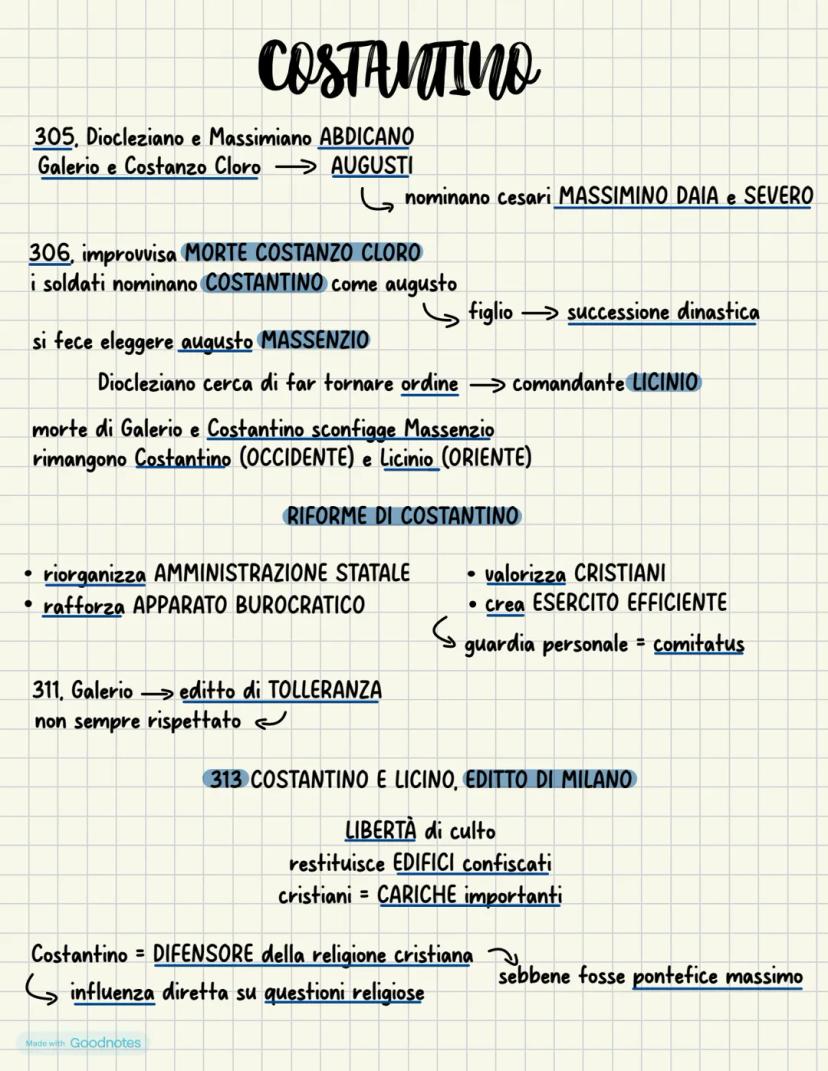 COSTANTINO
305, Diocleziano e Massimiano ABDICANO
Galerio e Costanzo Cloro → AUGUSTI
nominano cesari MASSIMINO DAIA e SEVERO
306, improvvisa MORTE COSTANZO CLORO
i soldati nominano COSTANTINO come augusto
figlio → successione dinastica
si fece eleggere augusto MASSENZIO
Diocleziano cerca di far tornare ordine → comandante LICINIO
morte di Galerio e Costantino sconfigge Massenzio
rimangono Costantino (OCCIDENTE) e Licinio (ORIENTE)
RIFORME DI COSTANTINO
• riorganizza AMMINISTRAZIONE STATALE
• rafforza APPARATO BUROCRATICO
• valorizza CRISTIANI
• crea ESERCITO EFFICIENTE
guardia personale = comitatus
311, Galerio → editto di TOLLERANZA
non sempre rispettato
313 COSTANTINO E LICINO, EDITTO DI MILANO
LIBERTÀ di culto
restituisce EDIFICI confiscati
cristiani = CARICHE importanti
Costantino = DIFENSORE della religione cristiana
sebbene fosse pontefice massimo
influenza diretta su questioni religiose
Made with Goodnotes